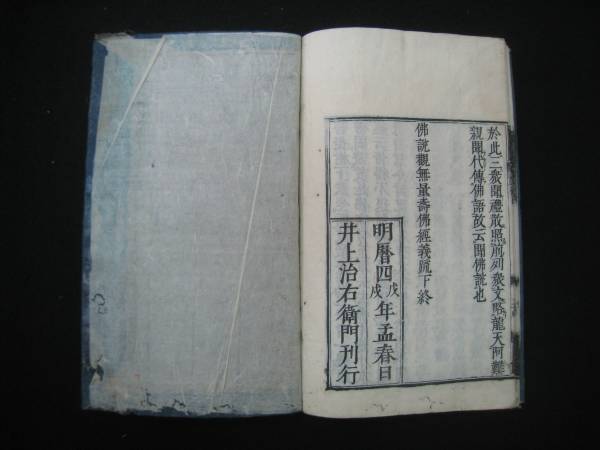 於此三衆聞禮散照前列衆文略龍天阿難
親聞代傳佛語故云聞佛說也
佛說觀無量壽佛經義疏下終
明曆四戊戌年孟春日
井上治右衛門刊行